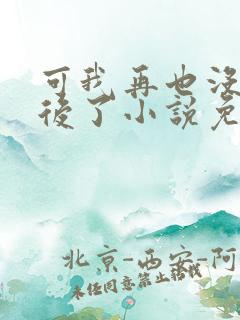 可我再也没
後了小説免
北京-西安-阿
未经同意禁止转载